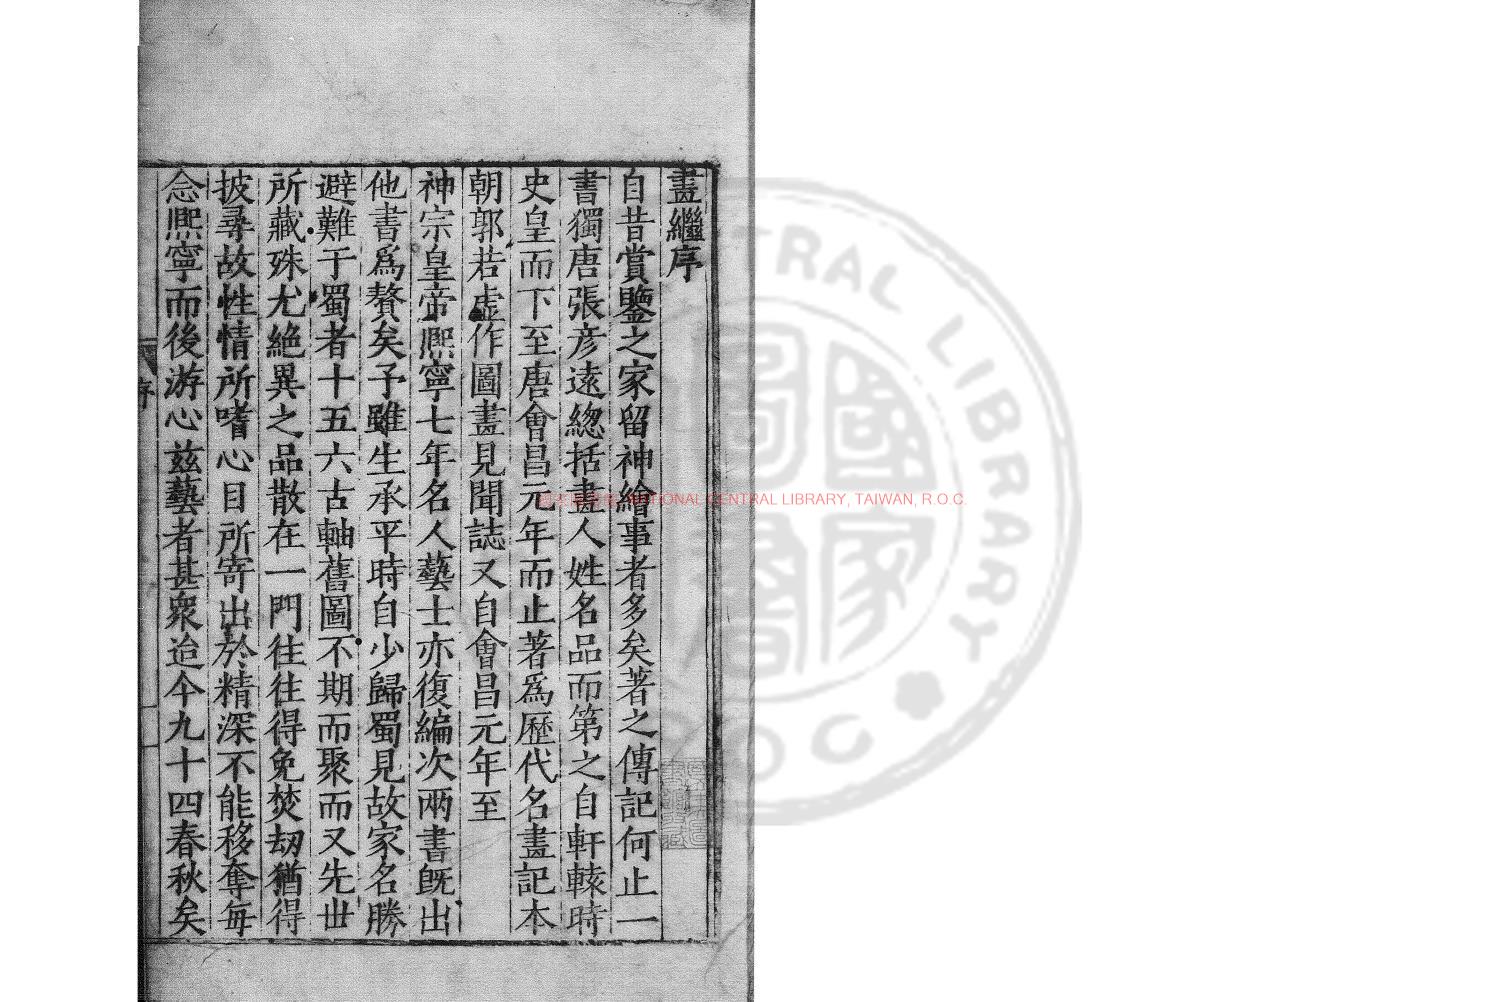 畫繼序
自昔賞鑒之家留神繪事者多矣著之傳記何止一
書獨唐張彦遠緫括畫人姓名品而第之自軒轅時
史皇而下至唐會昌元年而止著爲歷代名畫記本
朝郭若虛作圖畫見聞誌又自會昌元年至
神宗皇帝熈寧七年名人藝士亦復編次兩書旣出
他書爲贅矣予雖生承平時自少歸蜀見故家名勝
避難于蜀者十五六古軸舊圖不期而聚而又先世
所藏殊尤絶異之品散在一門往往得免焚刼猶得
披尋故性情所嗜心目所寄出於精深不能移奪每
念熈寧而後游心兹藝者甚衆迨今九十四春秋矣
序
NATIONAL CENTRAL LIBRARY, TAIWAN, R.O.C.
CENTRAL LIBRARY
ROC
國家圖書